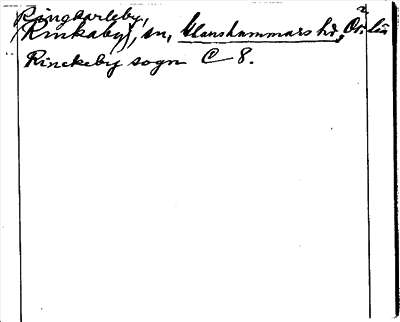 Ringkarleby,
(Rinkaby), sn, Glanshammars hd, Ör. län
Rinckeby sogn C 8.